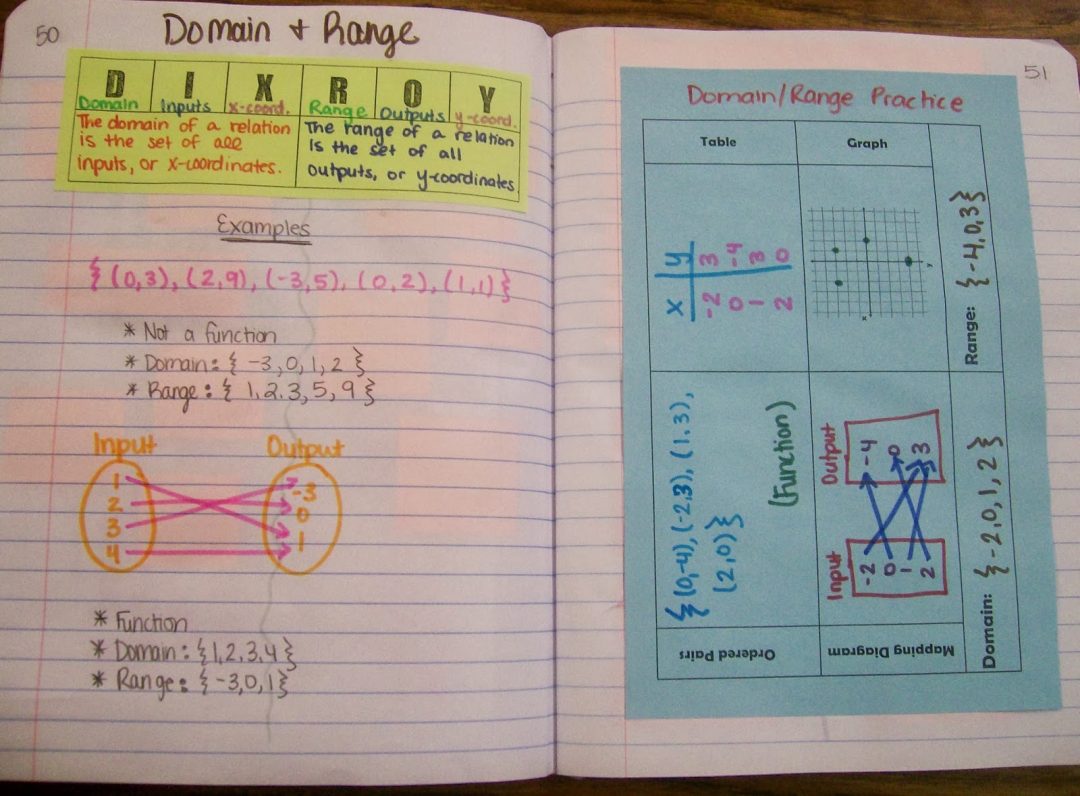 50
Domain + Range
D I X R O Y
Domain Inputs x-coord. Range Outputs y-coord.
The domain of a relation
is the set of all
inputs, or x-coordinates.
The range of a relation
is the set of all
outputs, or y-coordinates
Examples
{(0,3), (2,9), (-3,5), (0,2), (1,1)}
* Not a function
* Domain: { -3, 0, 1, 2 }
* Range: { 1, 2, 3, 5, 9 }
Input Output
1 -3
2 0
3 1
4
* Function
* Domain: {1,2,3,4}
* Range: {-3,0,1}
51
Domain/Range Practice
Table
x y
-2 3
0 -4
1 3
2 0
Graph
x
y
Ordered Pairs
{(0,-4), (-2,3), (1,3),
(2,0)}
(Function)
Mapping Diagram
Input Output
-2 -4
0 0
1 3
2
Domain: {-2,0,1,2}
Range: {-4,0,3}